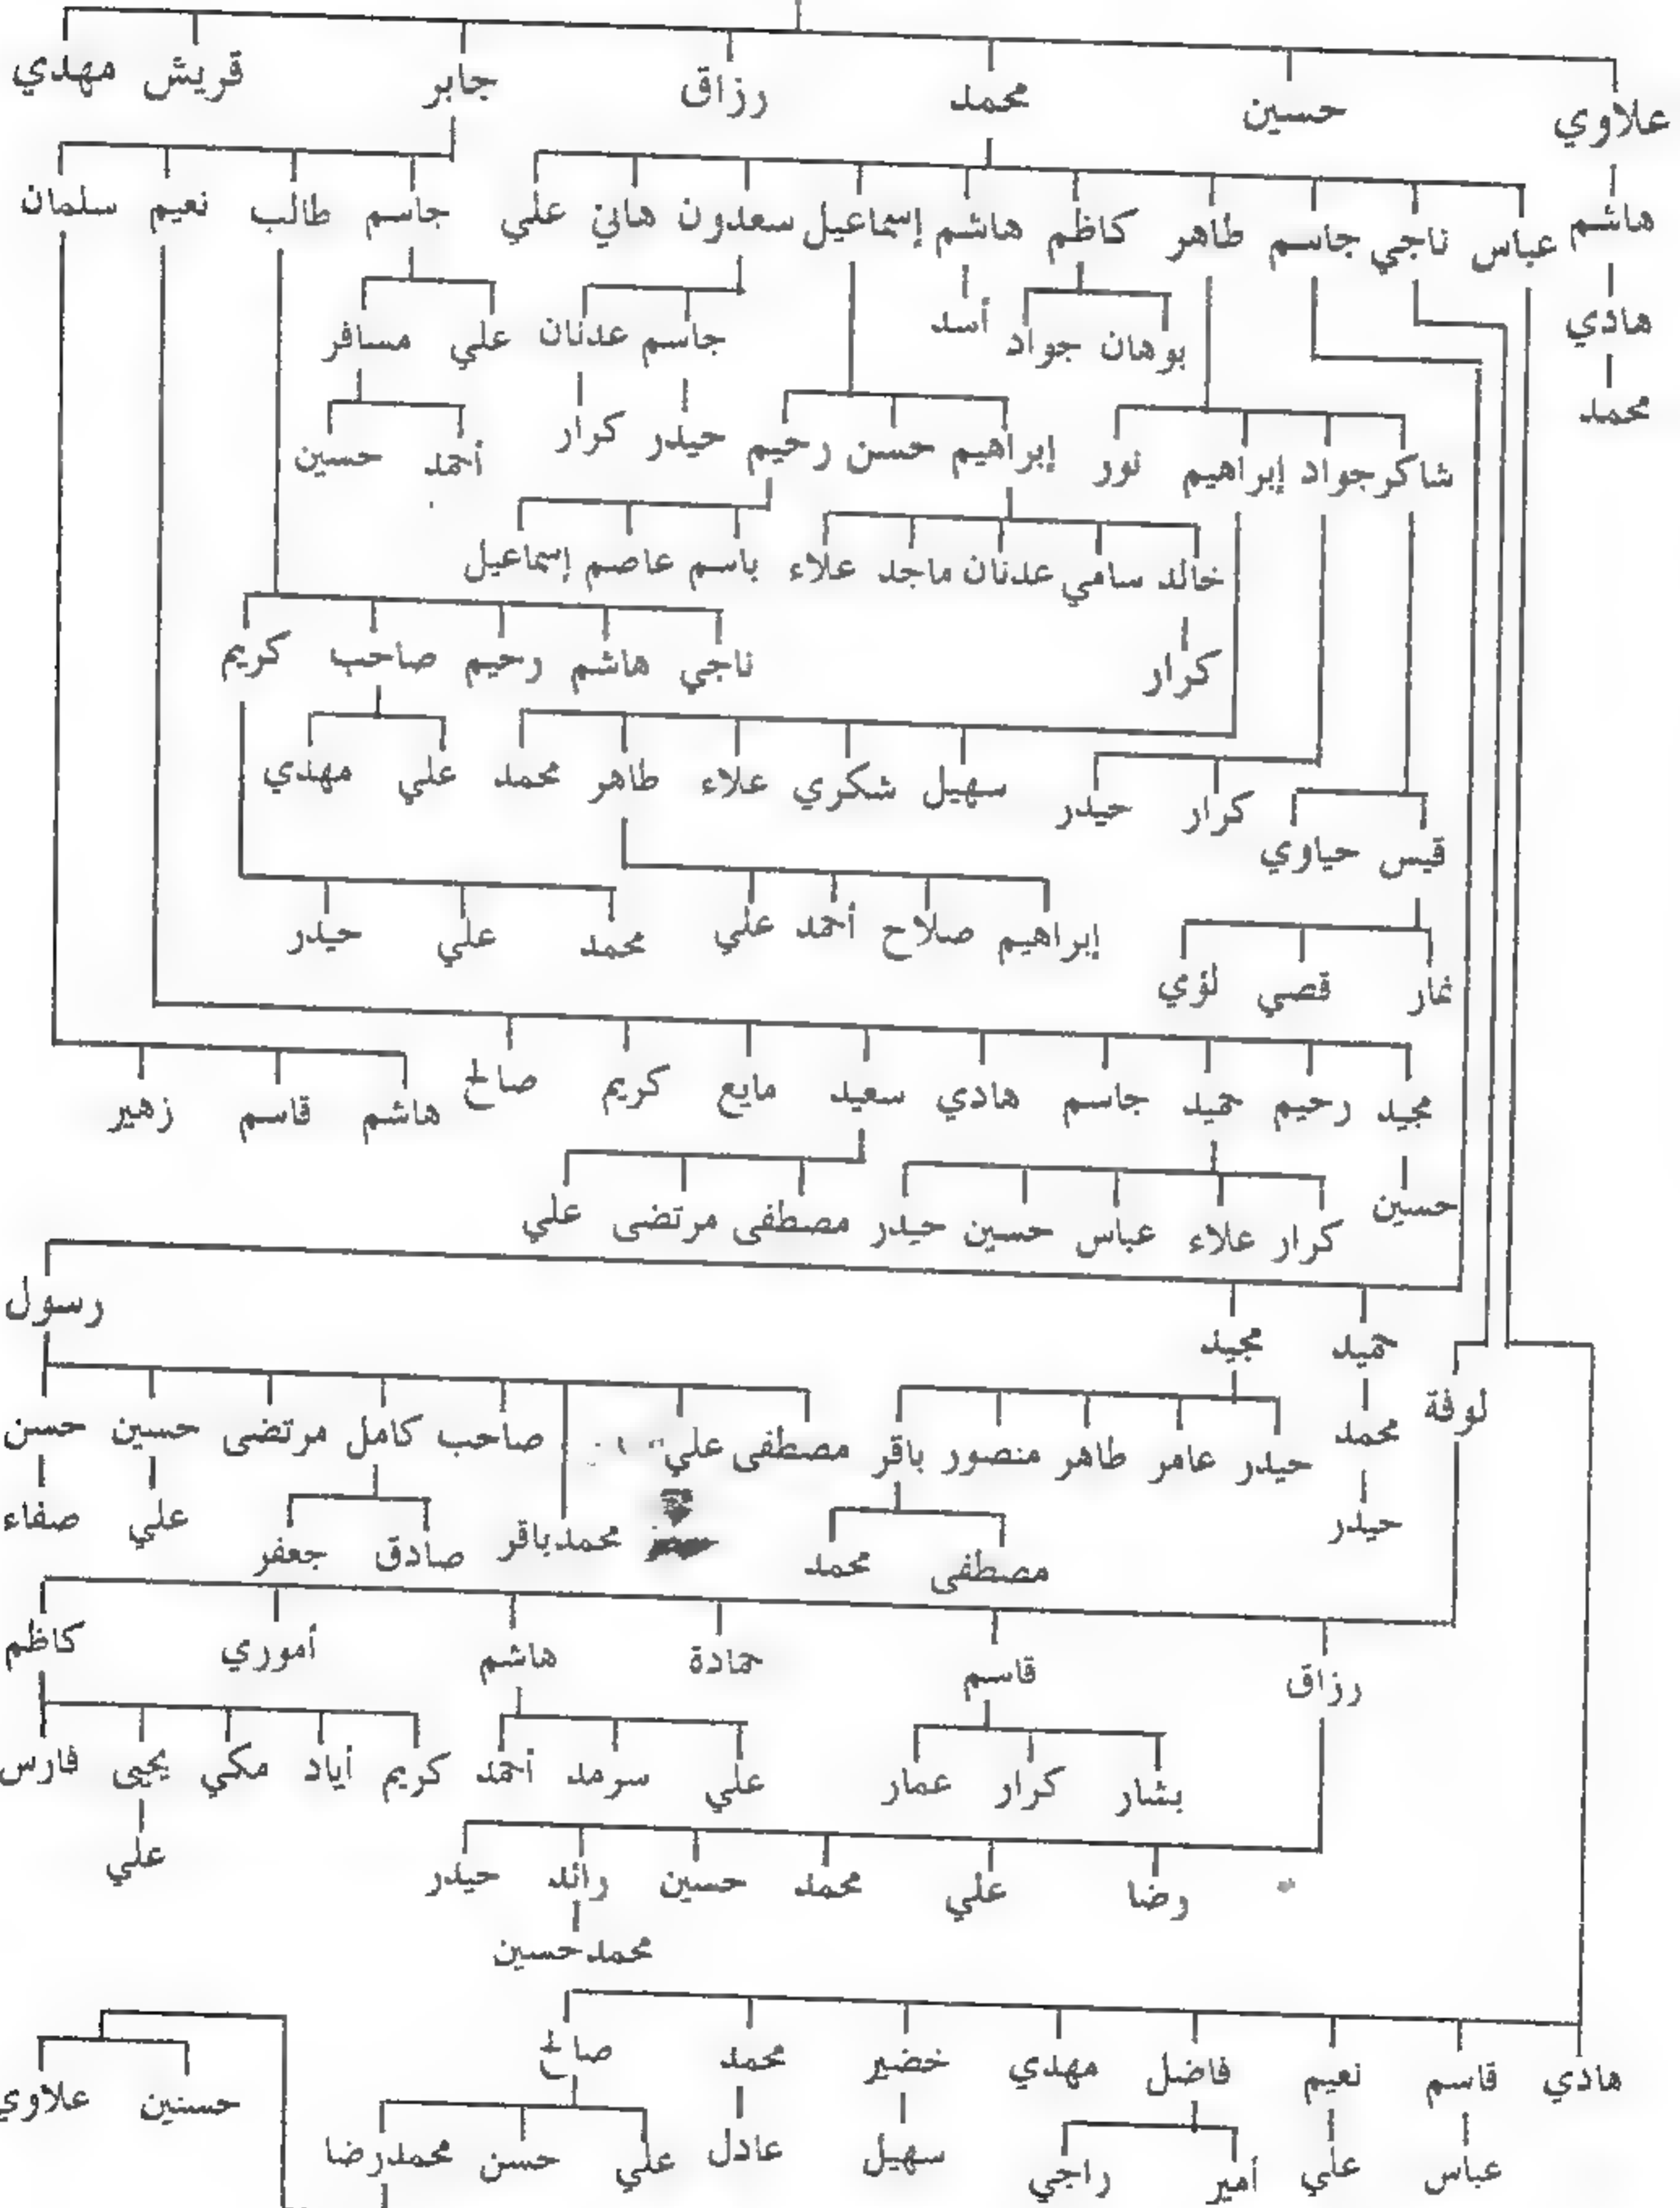 علاوي حسين محمد رزاق جابر قريش مهدي
هاشم عباس ناجي جاسم طاهر كاظم هاشم إسماعيل سعدون هاني علي جاسم طالب نعيم سلمان
هادي بوهان جواد أسد جاسم عدنان علي مسافر
محمد شاكر جواد إبراهيم نور إبراهيم حسن رحيم حيدر كرار أحمد حسين
خالد سامي عدنان ماجد علاء باسم عاصم إسماعيل
كرار ناجي هاشم رحيم صاحب كريم
قيس حياوي كرار حيدر سهيل شكري علاء طاهر محمد علي مهدي
قصي لؤي إبراهيم صلاح أحمد علي محمد علي حيدر
مجيد رحيم حميد جاسم هادي سعيد مايع كريم صالح هاشم قاسم زهير
حسين كرار علاء عباس حسين حيدر مصطفى مرتضى علي
حميد مجيد رسول
لوفة محمد حيدر عامر طاهر منصور باقر مصطفى علي صاحب كامل مرتضى حسين حسن
حيدر مصطفى محمد محمدباقر صادق جعفر علي صفاء
رزاق قاسم حمادة هاشم أموري كاظم
بشار كرار عمار علي سرمد أحمد كريم أياد مكي يحيى فارس
رضا علي محمد حسين رائد حيدر علي
محمدحسين
هادي قاسم نعيم فاضل مهدي خضير محمد صالح حسنين علاوي
عباس علي أمير راجي سهيل عادل علي حسن محمدرضا